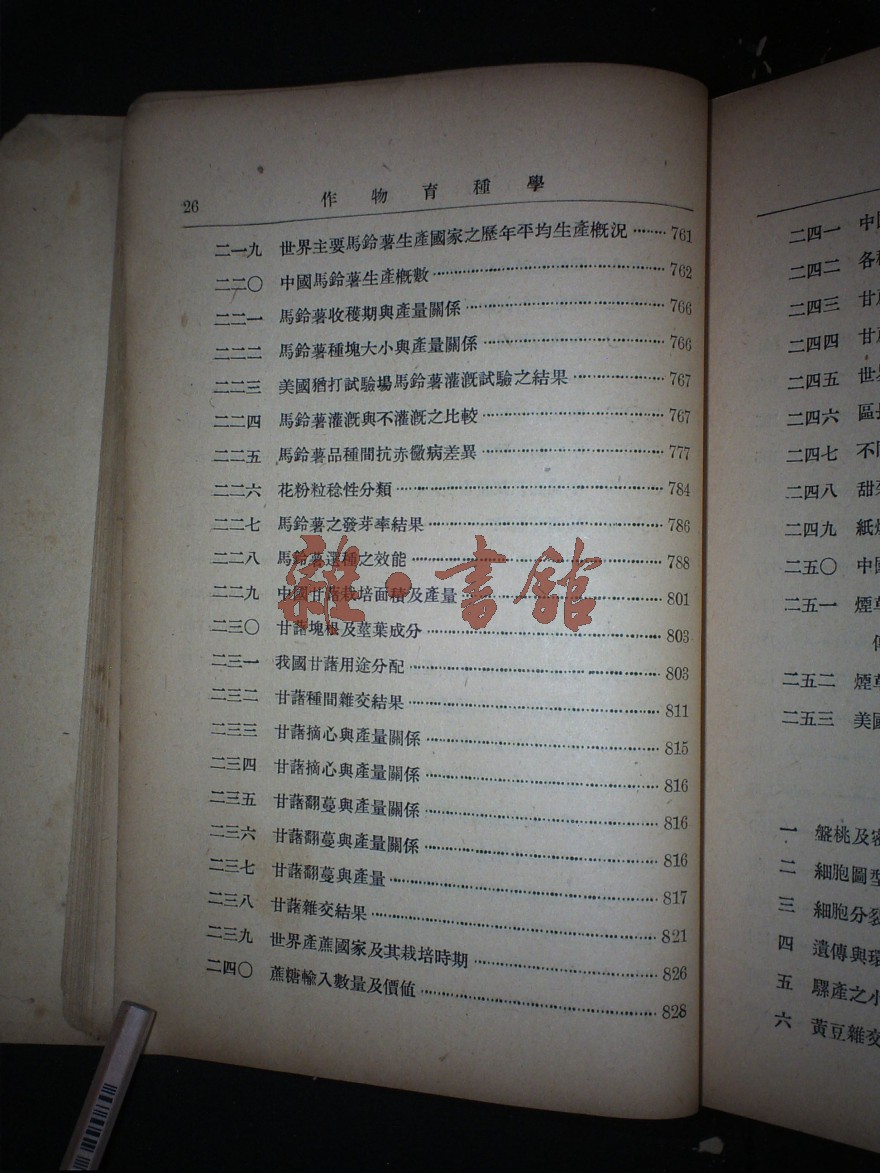 26 作物育種學
二一九 世界主要馬鈴薯生產國家之歷年平均生產概況 ········ 761
二二〇 中國馬鈴薯生產概數 ········ 762
二二一 馬鈴薯收穫期與產量關係 ········ 766
二二二 馬鈴薯種塊大小與產量關係 ········ 766
二二三 美國猶打試驗場馬鈴薯灌漑試驗之結果 ········ 767
二二四 馬鈴薯灌漑與不灌漑之比較 ········ 767
二二五 馬鈴薯品種間抗赤黴病差異 ········ 777
二二六 花粉粒稔性分類 ········ 784
二二七 馬鈴薯之發芽率結果 ········ 786
二二八 馬鈴薯選種之效能 ········ 788
二二九 中國甘藷栽培面積及產量 ········ 801
二三〇 甘藷塊根及莖葉成分 ········ 803
二三一 我國甘藷用途分配 ········ 803
二三二 甘藷種間雜交結果 ········ 811
二三三 甘藷摘心與產量關係 ········ 815
二三四 甘藷摘心與產量關係 ········ 816
二三五 甘藷翻蔓與產量關係 ········ 816
二三六 甘藷翻蔓與產量關係 ········ 816
二三七 甘藷翻蔓與產量 ········ 817
二三八 甘藷雜交結果 ········ 821
二三九 世界產蔗國家及其栽培時期 ········ 826
二四〇 蔗糖輸入數量及價值 ········ 828
雜·書館
二四一 中
二四二 各
二四三 甘
二四四 甘
二四五 世
二四六 區
二四七 不
二四八 甜
二四九 紙
二五〇 中
二五一 煙
二五二 煙
二五三 美
一 盤桃及
二 細胞圖
三 細胞分
四 遺傳與
五 騾產之小
六 黃豆雜